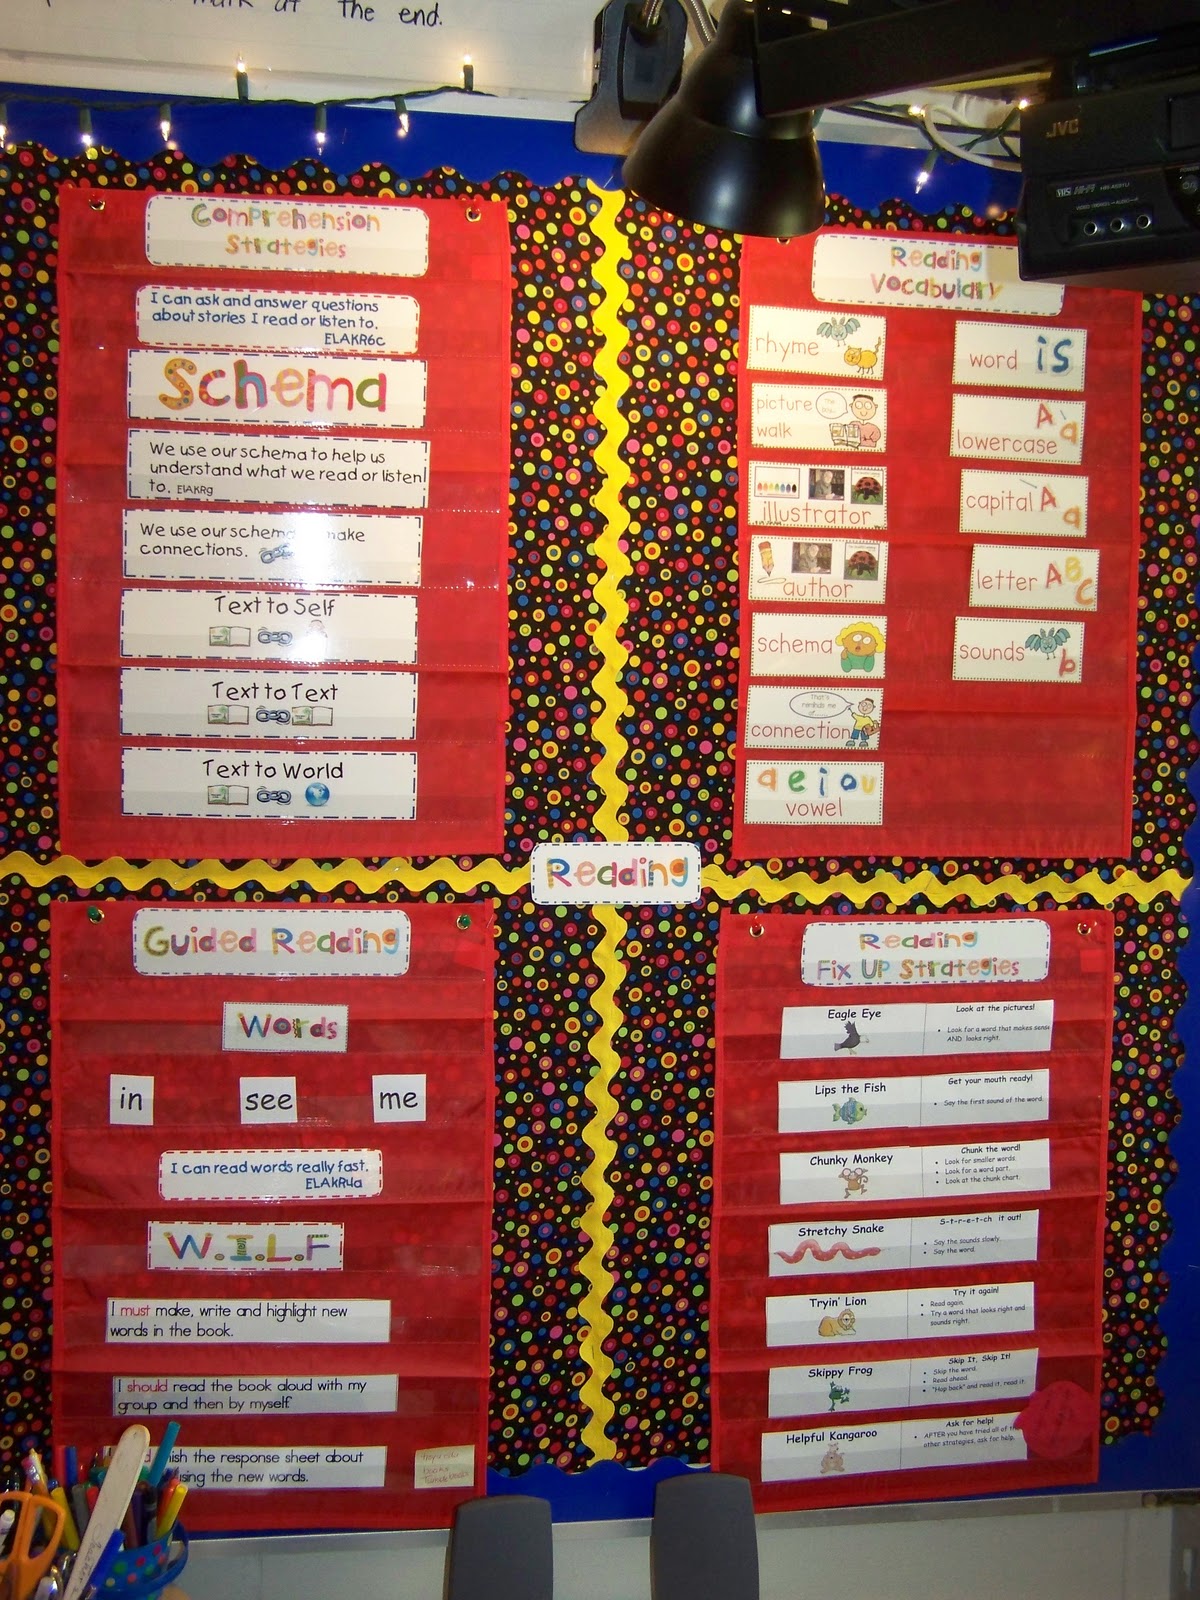 at the end.
JVC
VHS Hi-Fi
Comprehension
Strategies
I can ask and answer questions
about stories I read or listen to.
ELAKR6c
Schema
We use our schema to help us
understand what we read or listen
to. ElAKRg
We use our schema make
connections.
Text to Self
Text to Text
Text to World
Reading
Vocabulary
rhyme
picture
walk
illustrator
author
schema
That's
reminds me
of...
connection
a e i o u
vowel
word is
A a
lowercase
capital A a
letter A B C
sounds b
Reading
Guided Reading
Words
in see me
I can read words really fast.
ELAKR4a
W.I.L.F
I must make, write and highlight new
words in the book.
I should read the book aloud with my
group and then by myself.
the response sheet about
using the new words.
Reading
Fix Up Strategies
Eagle Eye
Look at the pictures!
• Look for a word that makes sense
AND looks right.
Lips the Fish
Get your mouth ready!
• Say the first sound of the word.
Chunky Monkey
Chunk the word!
• Look for smaller words.
• Look for a word part.
• Look at the chunk chart.
Stretchy Snake
S-t-r-e-t-ch it out!
• Say the sounds slowly.
• Say the word.
Tryin' Lion
Try it again!
• Read again.
• Try a word that looks right and
sounds right.
Skippy Frog
Skip It, Skip It!
• Skip the word.
• Read ahead.
• "Hop back" and read it, read it.
Helpful Kangaroo
Ask for help!
• AFTER you have tried all of
other strategies, ask for help.